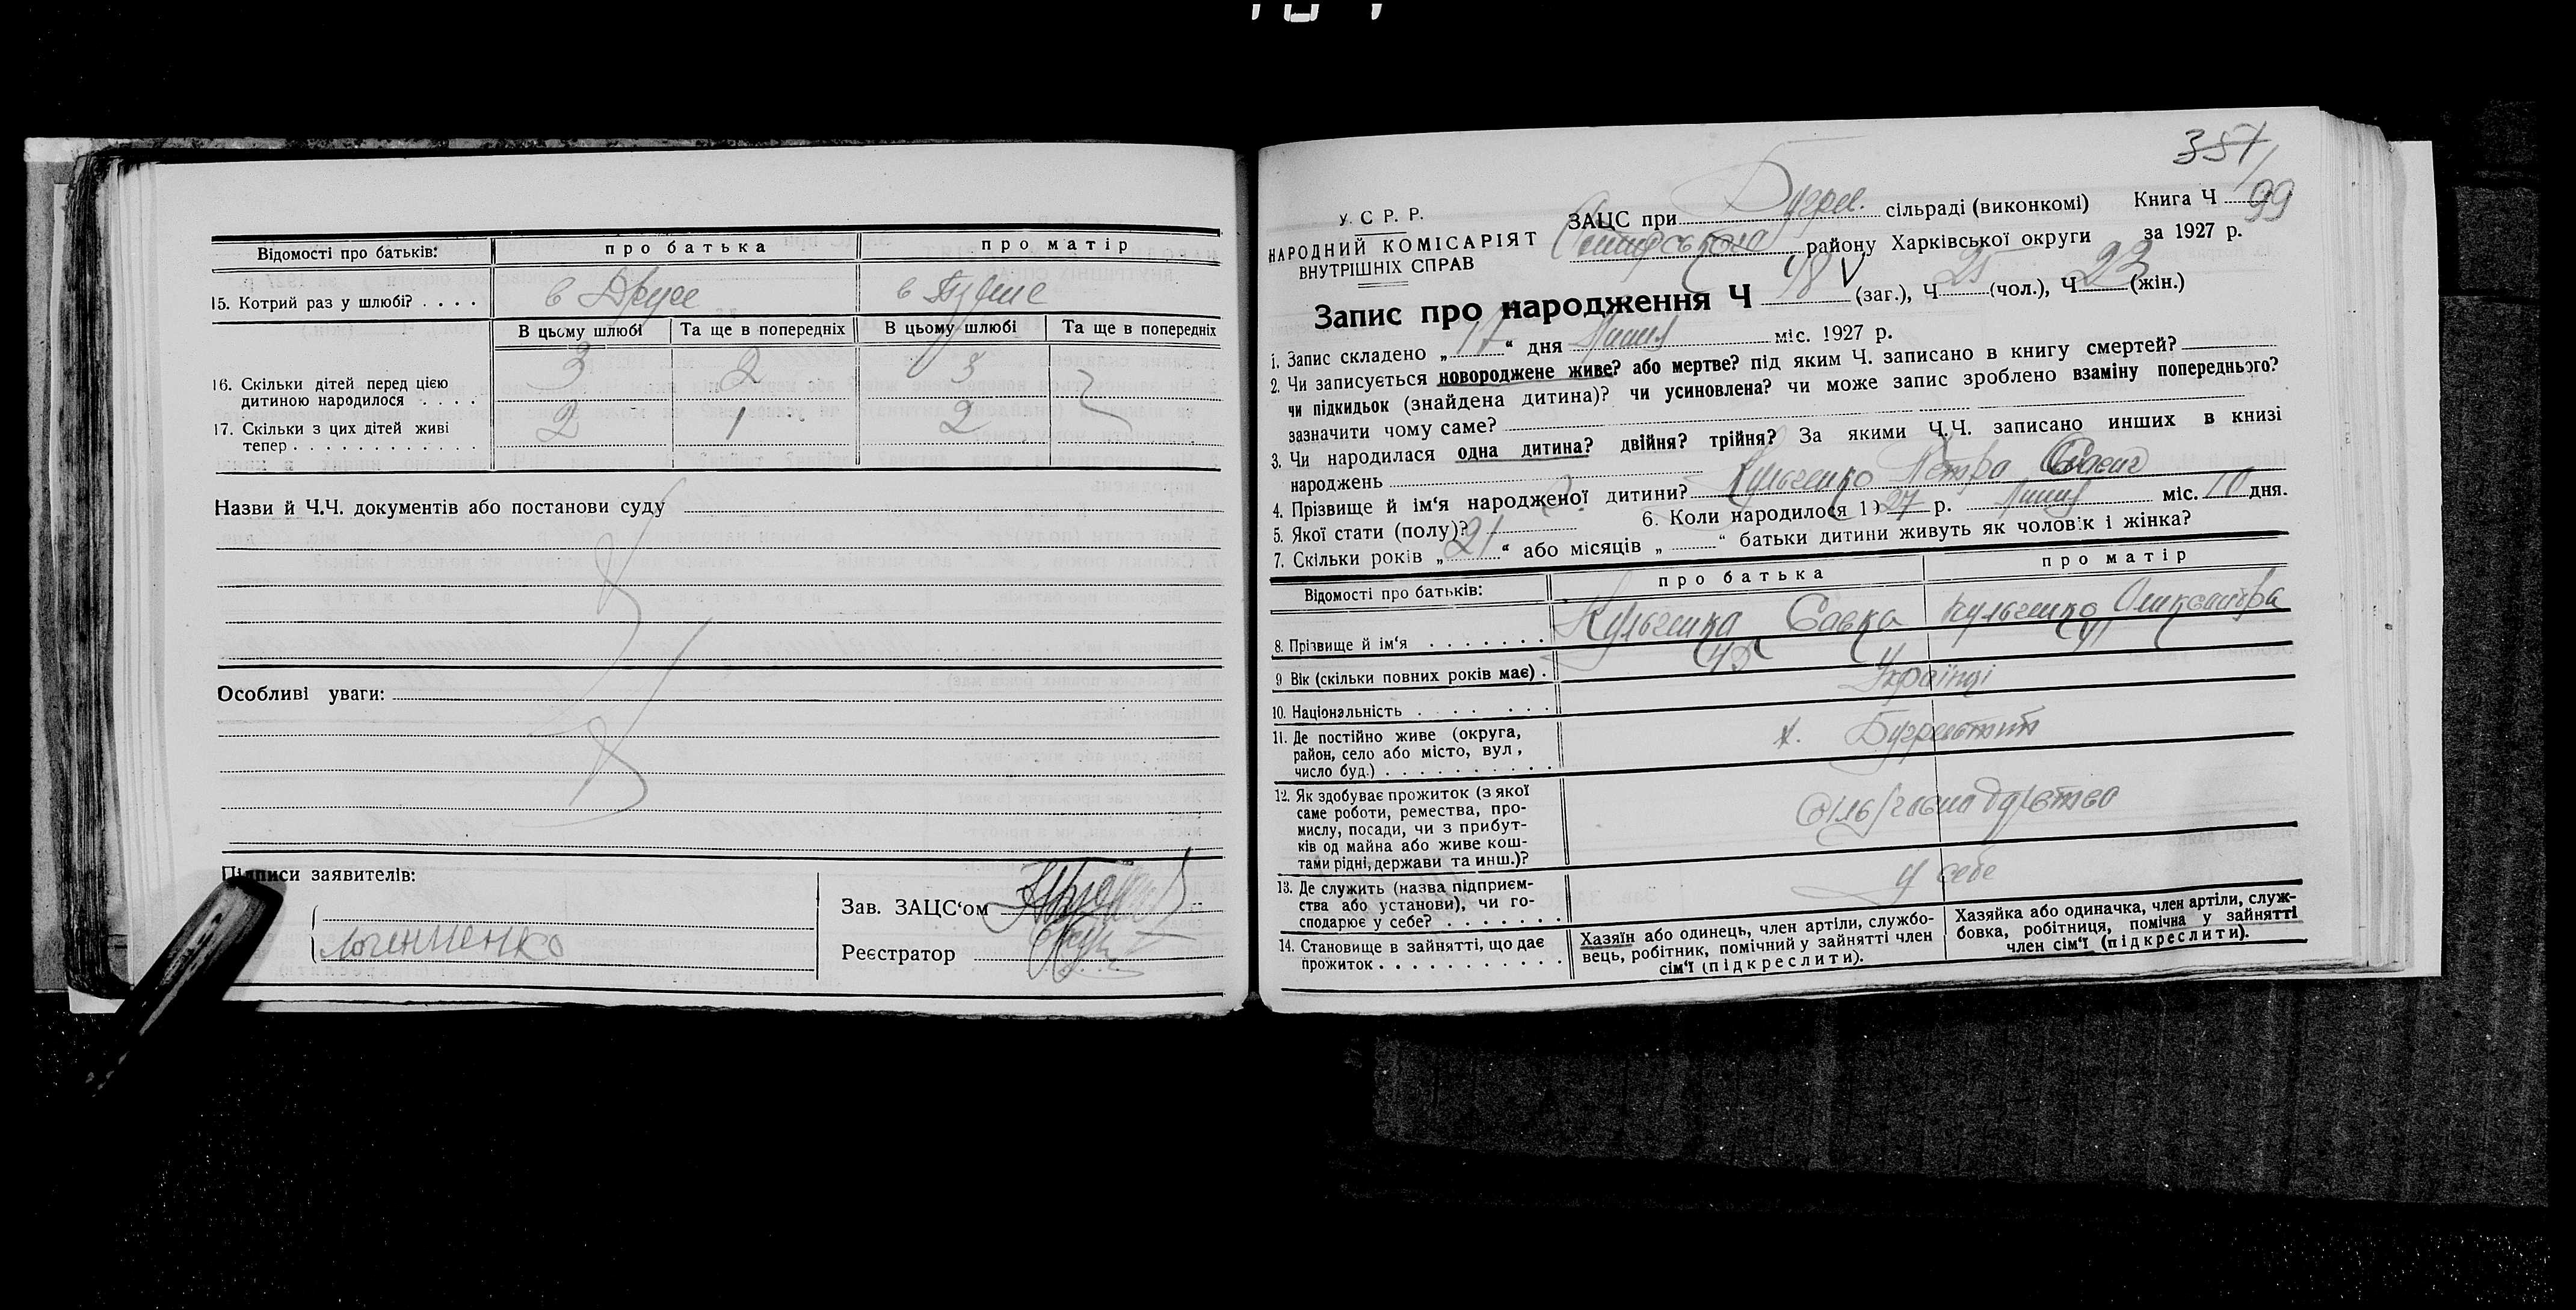 Відомості про батьків: про батька про матір
15. Котрий раз у шлюбі? . . . . в Друге в Перше
В цьому шлюбі Та ще в попередніх В цьому шлюбі Та ще в попередніх
16. Скільки дітей перед цією 3 2 3
дитиною народилося . . . .
17. Скільки з цих дітей живі 2 1 2
тепер . . . . . . . . . . . .
Назви й Ч.Ч. документів або постанови суду
Особливі уваги:
Підписи заявителів:
Зав. ЗАЦС‘ом
Реєстратор
357
У. С. Р. Р.
НАРОДНИЙ КОМІСАРІЯТ
ВНУТРІШНІХ СПРАВ
ЗАЦС при сільраді (виконкомі) Книга Ч 99
району Харківської округи за 1927 р.
Запис про народження Ч 48 (заг.), Ч 25 (чол.), Ч 23 (жін.)
1. Запис складено „ 17 “ дня Липня міс. 1927 р.
2. Чи записується новороджене живе? або мертве? під яким Ч. записано в книгу смертей?
чи підкидьок (знайдена дитина)? чи усиновлена? чи може запис зроблено взаміну попереднього?
зазначити чому саме?
3. Чи народилася одна дитина? двійня? трійня? За якими Ч.Ч. записано инших в книзі
народжень
4. Прізвище й ім‘я народженої дитини? Кульченко Петро
5. Якої стати (полу)? 6. Коли народилося 1927 р. Липня міс. 10 дня.
7. Скільки років „ 21 “ або місяців „ “ батьки дитини живуть як чоловік і жінка?
Відомості про батьків: про батька про матір
8. Прізвище й ім‘я . . . . . . . Кульченко Савка Кульченко Олександра
9 Вік (скільки повних років має) .
10. Національність . . . . . . . Українці
11. Де постійно живе (округа,
район, село або місто, вул,
число буд.) . . . . . . . . . .
12. Як здобуває прожиток (з якої
саме роботи, ремества, про-
мислу, посади, чи з прибут-
ків од майна або живе кош-
тами рідні, держави та инш.)?
13. Де служить (назва підприєм-
ства або установи), чи го-
сподарює у себе? . . . . . . у себе
14. Становище в зайнятті, що дає
прожиток . . . . . . . . . . .
Хазяїн або одинець, член артіли, службо-
вець, робітник, помічний у зайнятті член
сім‘ї (підкреслити).
Хазяйка або одиначка, член артіли, служ-
бовка, робітниця, помічна у зайнятті
член сім‘ї (підкреслити).